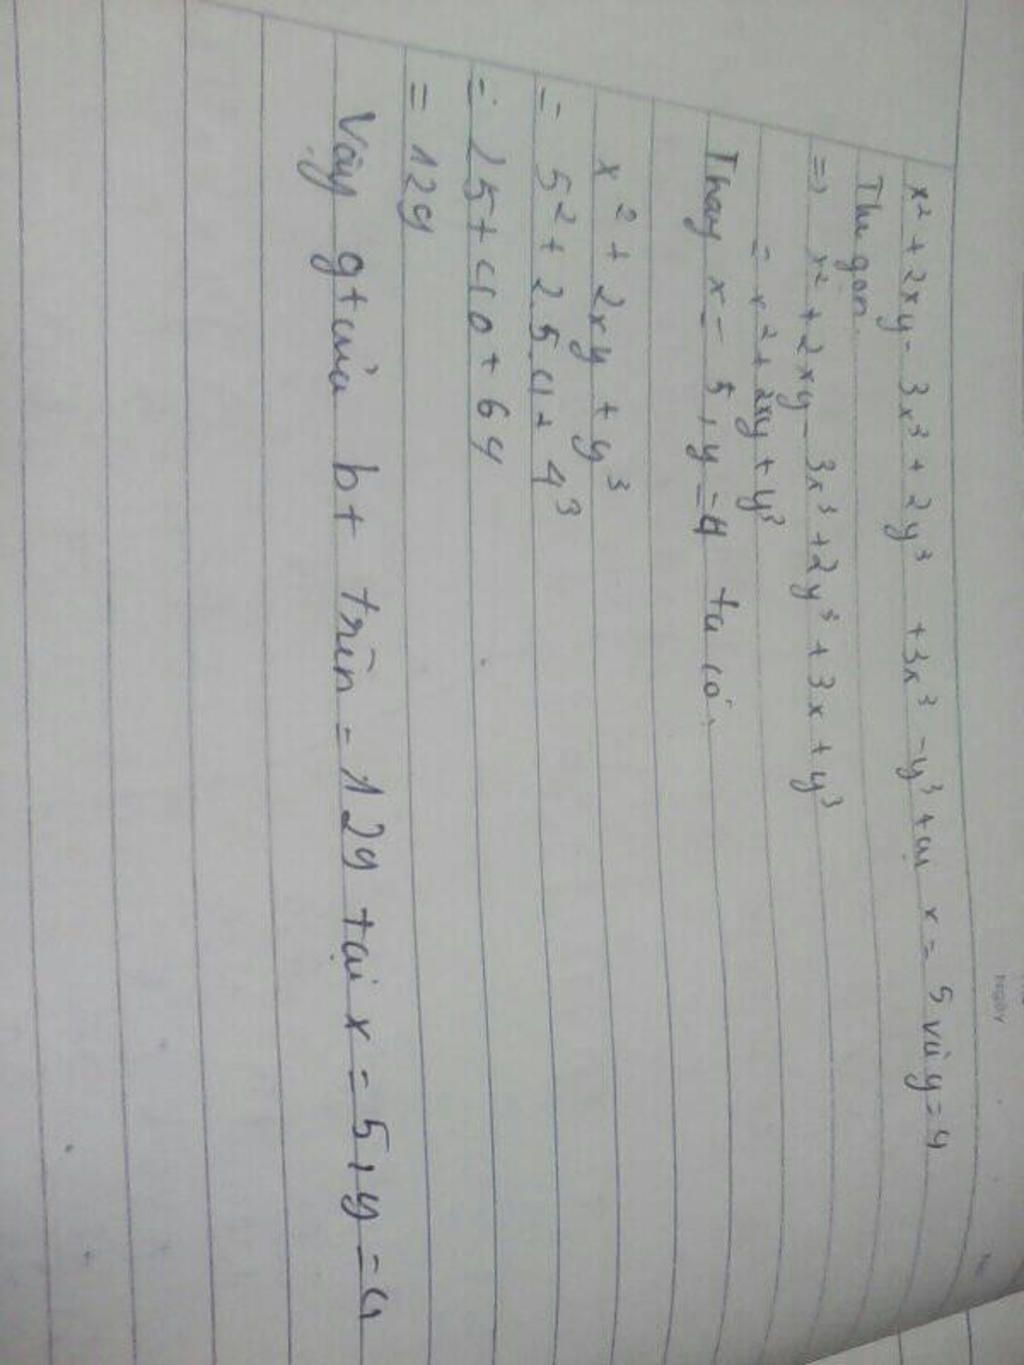 x² + 2xy - 3x³ + 2y³ + 3x³ - y³ tại x = 5 và y = 4
Thu gọn
=> x² + 2xy - 3x³ + 2y³ + 3x + y³
= x² + 2xy + y³
Thay x = 5, y = 4 ta có.
x² + 2xy + y³
= 5² + 2.5.4 + 4³
= 25 + 40 + 64
= 129
Vậy gt của bt trên = 129 tại x = 5, y = 4
Ngày